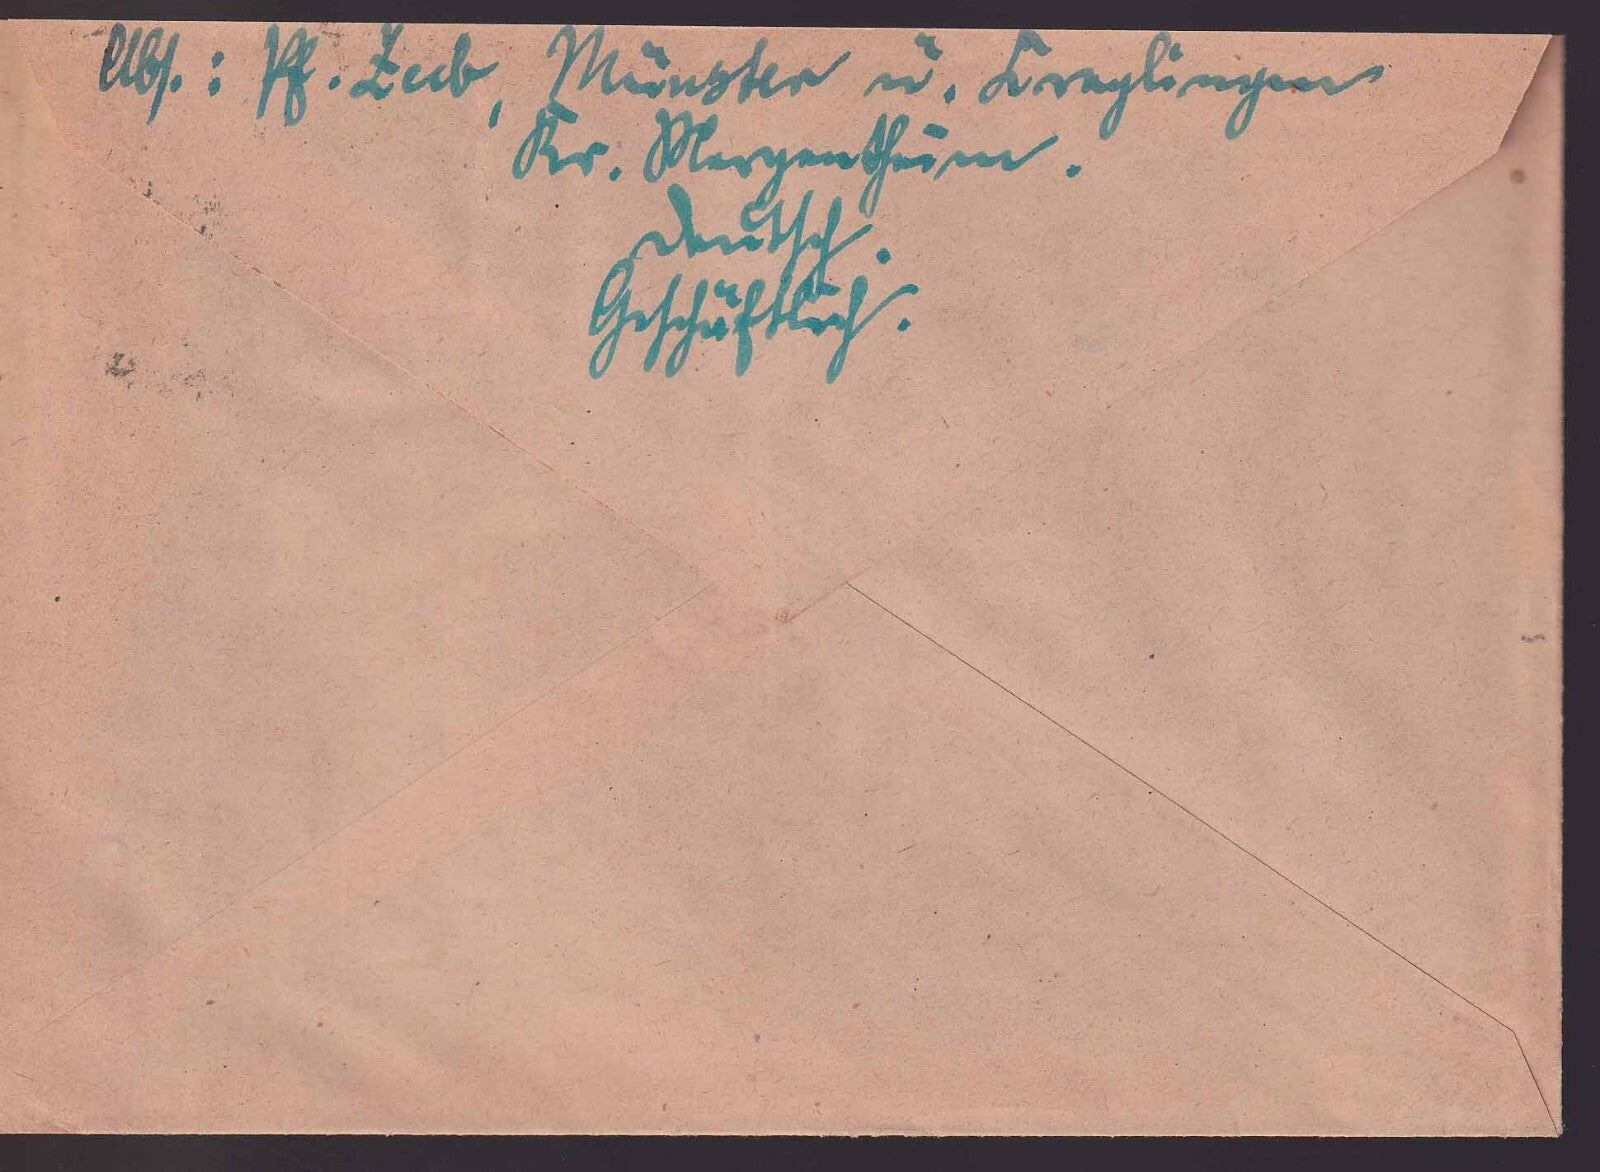 Abs.: Pf. Zeeb, Münster ü. Creglingen
Kr. Mergentheim.
Deutsch.
Geschäftlich.